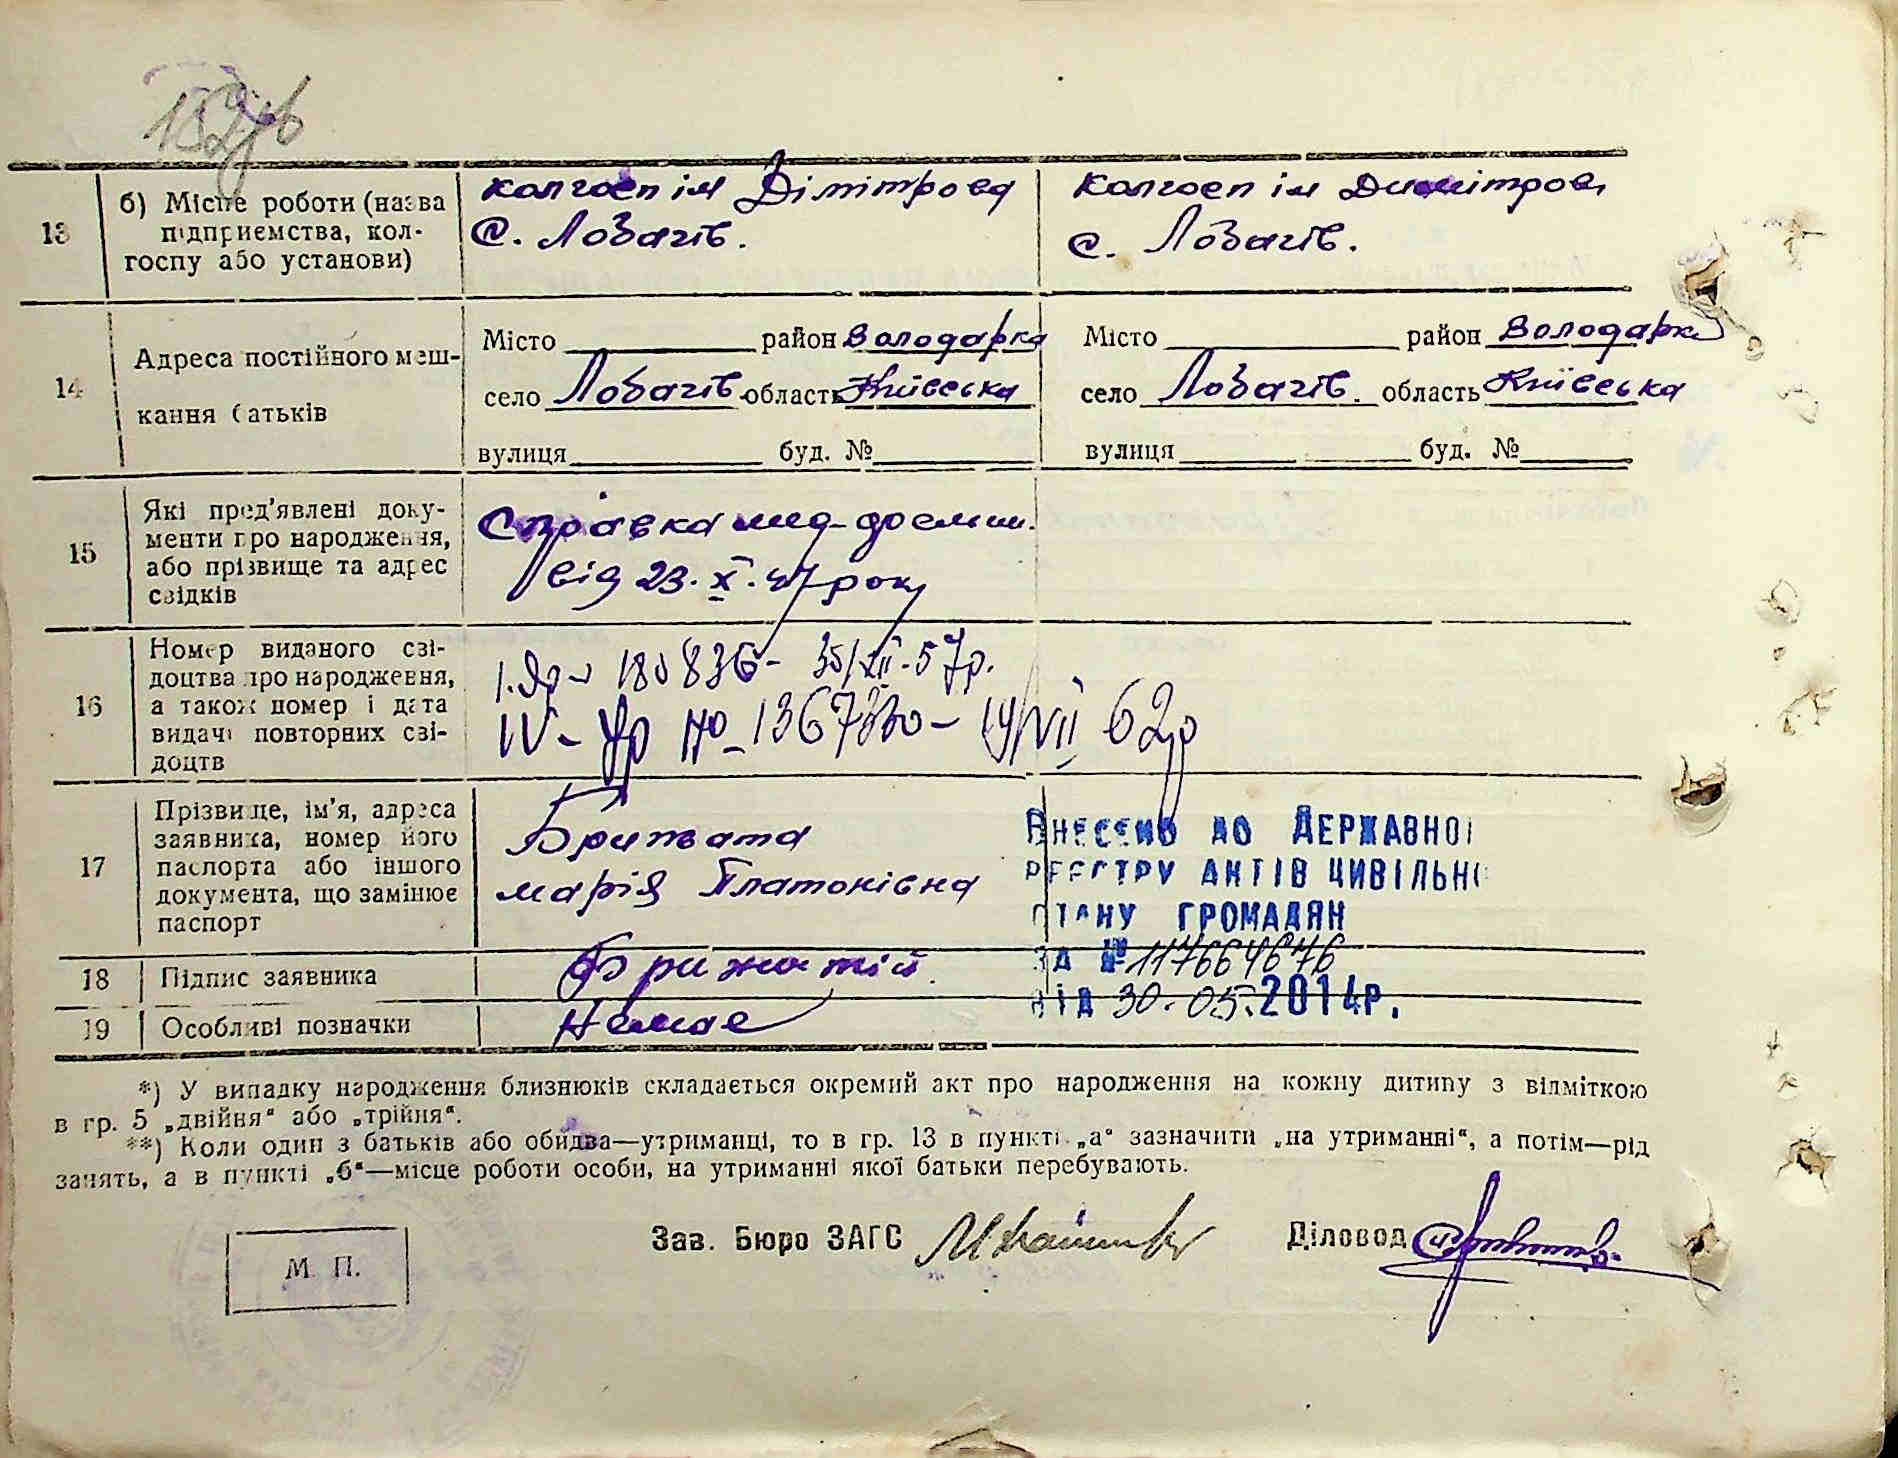 13
б) Місце роботи (назва
підприємства, кол-
госпу або установи)
колгосп ім Дімітрова
с. Лобачів.
колгосп ім Димітрова
с. Лобачів.
14
Адреса постійного меш-
кання батьків
Місто район Володарка
село Лобачів область Київська
вулиця буд. №
Місто район Володарка
село Лобачів. область Київська
вулиця буд. №
15
Які пред'явлені доку-
менти про народження,
або прізвище та адрес
свідків
Справка
від 23. X. 47 року
16
Номер виданого сві-
доцтва про народження,
а також номер і дата
видачі повторних сві-
доцтв
57р.
IV - 62р
17
Прізвище, ім'я, адреса
заявника, номер його
паспорта або іншого
документа, що замінює
паспорт
Марія Платонівна
Внесено до Державної
реєстру актів цивільно
стану громадян
за № 117664676
від 30.05.2014р.
18
Підпис заявника
19
Особливі позначки
Немае
*) У випадку народження близнюків складається окремий акт про народження на кожну дитину з відміткою
в гр. 5 „двійня" або „трійня".
**) Коли один з батьків або обидва—утриманці, то в гр. 13 в пункті „а" зазначити „на утриманні", а потім—рід
занять, а в пункті „б"—місце роботи особи, на утриманні якої батьки перебувають.
Зав. Бюро ЗАГС
Діловод
М. П.